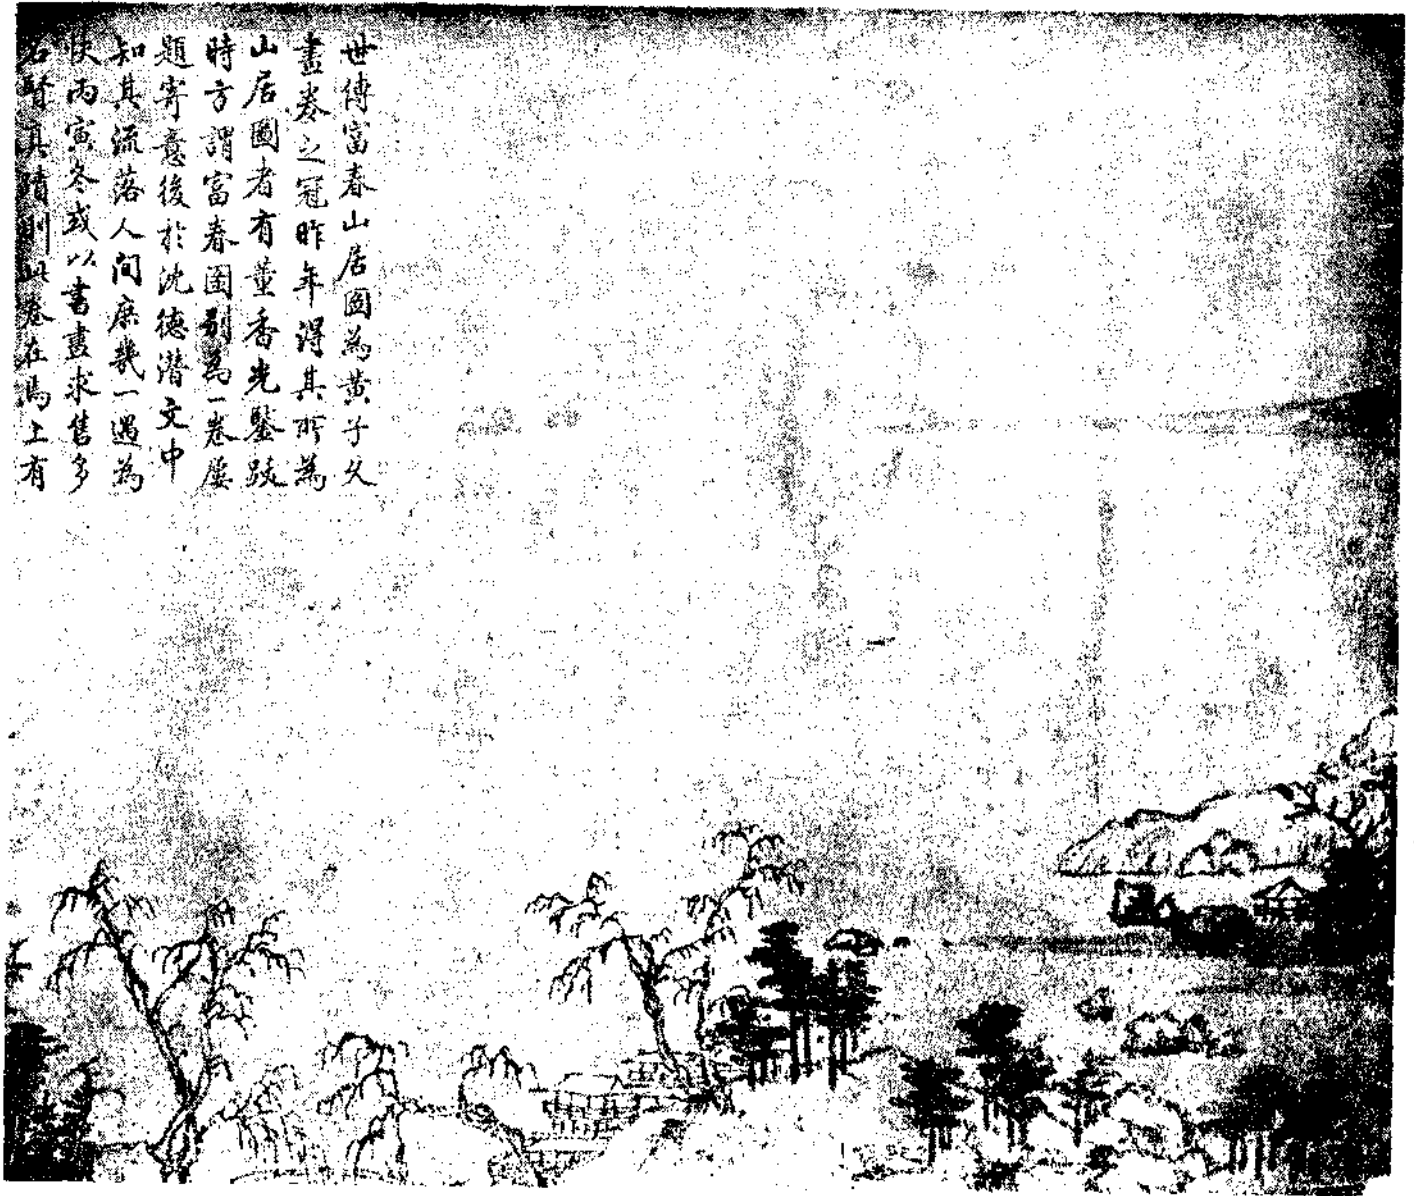 世傳富春山居圖為黃子久
畫卷之冠昨年得其所為
山居圖者有董香光鑒跋
時方謂富春圖別為一卷屢
題寄意後於沈德潛文中
知其流落人間庶幾一遇為
快丙寅冬或以書畫求售多
名賢真蹟則此卷在焉上有